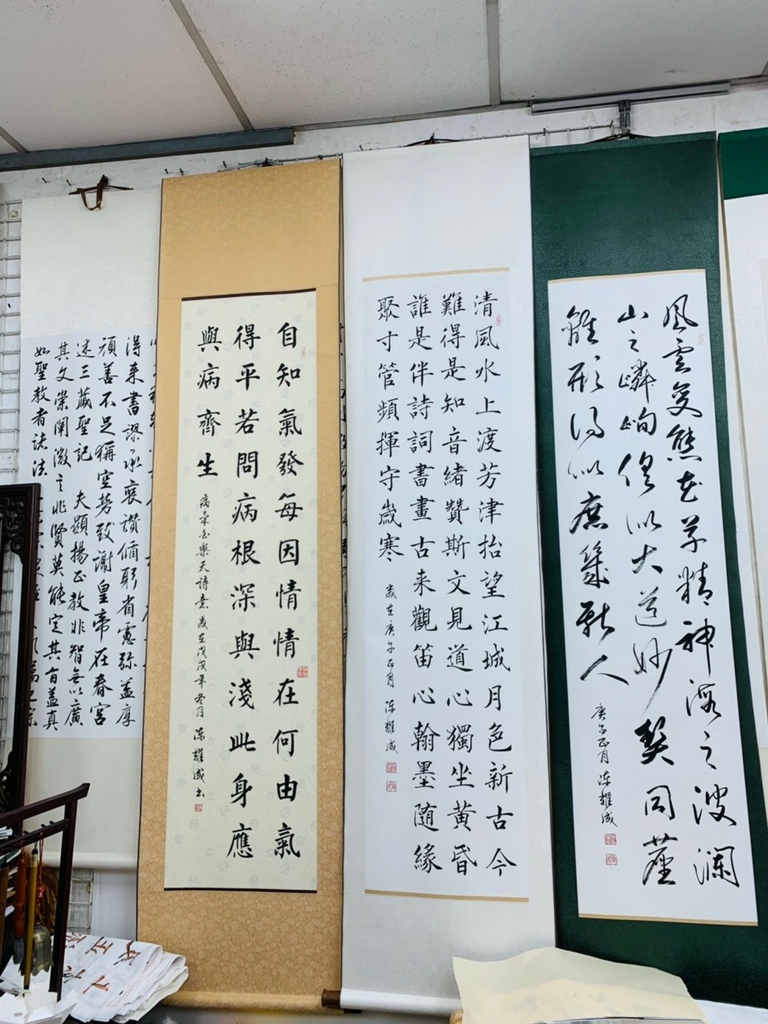 風雲變態花草精神海之波瀾
山之嶙峋俱似大道妙契同塵
離形得似庶幾斯人
庚子正月 陳雄成
清風水上渡芳津抬望江城月色新古今
難得是知音緒贊斯文見道心獨坐黃昏
誰是伴詩詞書畫古来觀笛心翰墨隨緣
聚寸管頻揮守歲寒
歲在庚子正月 陳雄成
自知氣發每因情情在何由氣
得平若問病根深與淺此身應
與病齊生
樂天詩意歲在戊戌年冬月 陳雄成書
得来書謬承褒讚脩躬省慮彌益厚
顏善不足稱空勞致謝皇帝在春宮
述三藏聖記 夫顯揚正教非智無以廣
其文崇闡微言非賢莫能定其旨蓋真
如聖教者諸法